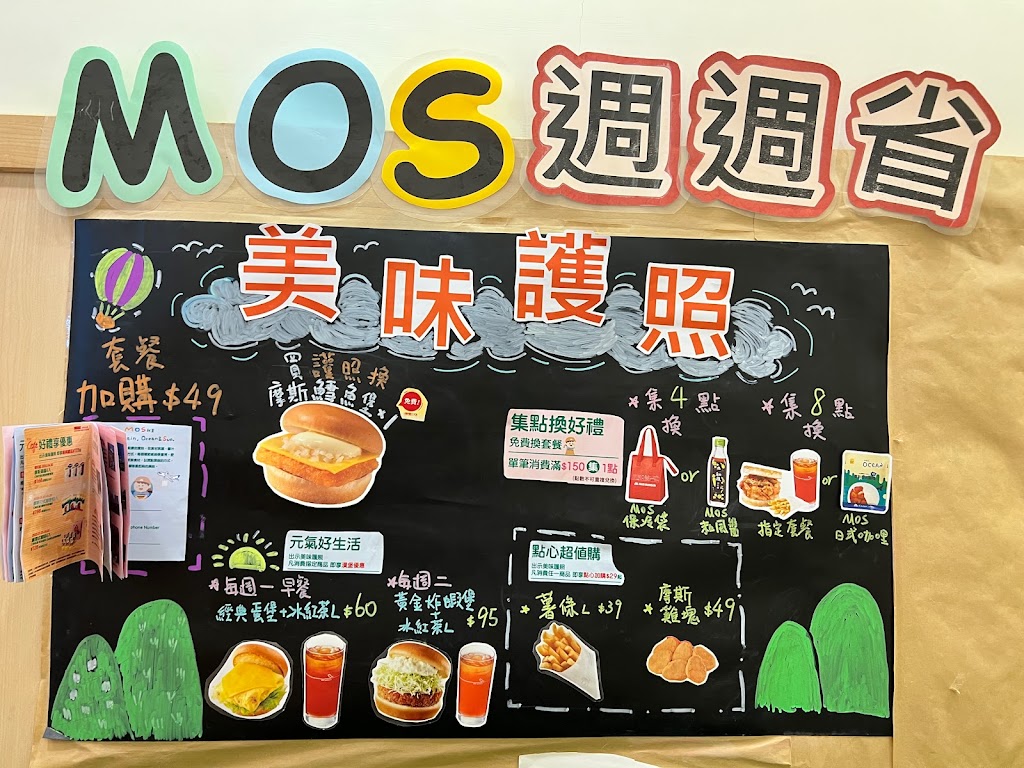 MOS週週省
美味護照
套餐
加購$49
買護照換
摩斯鱈魚堡
免費!
集點換好禮
免費換套餐
單筆消費滿$150集1點
集4點
換
集8點
換
or
or
MOS
保冷袋
MOS
和風醬
指定套餐
MOS
日式咖哩
好禮享優惠
MOS
Ocean&Sun.
phone Number
元氣好生活
出示美味護照
凡消費指定商品 即享漢堡優惠
*每週一早餐
經典蛋堡+冰紅茶L $60
*每週二
黃金炸蝦堡
+
冰紅茶L $95
點心超值購
出示美味護照
凡消費任一商品 即享點心加購$29起
*薯條L $39
*摩斯
雞塊 $49